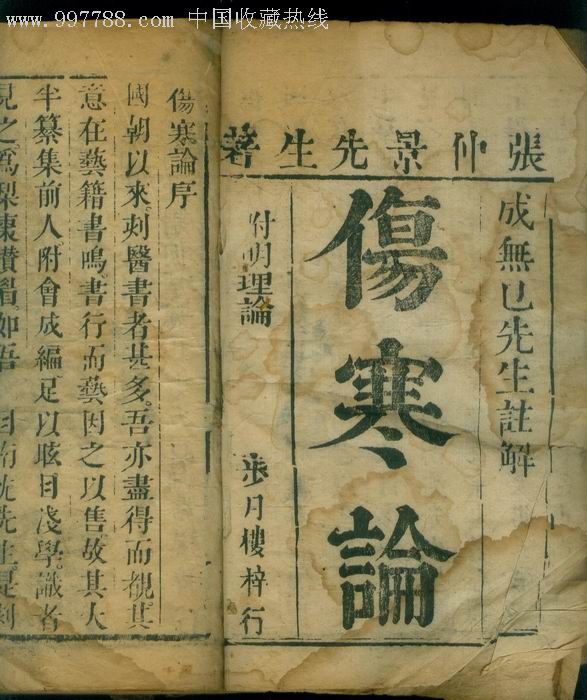 www.997788.com 中国收藏热线
張仲景先生著
成無已先生註解
傷寒論
附明理論
步月樓梓行
傷寒論序
國朝以來刺醫書者甚多吾亦盡得而覩其
意在藝籍書鳴書行而藝因之以售故其大
半纂集前人附會成編足以眩目淺學識者
見之為梨棗
如吾
目南沈先生是刺